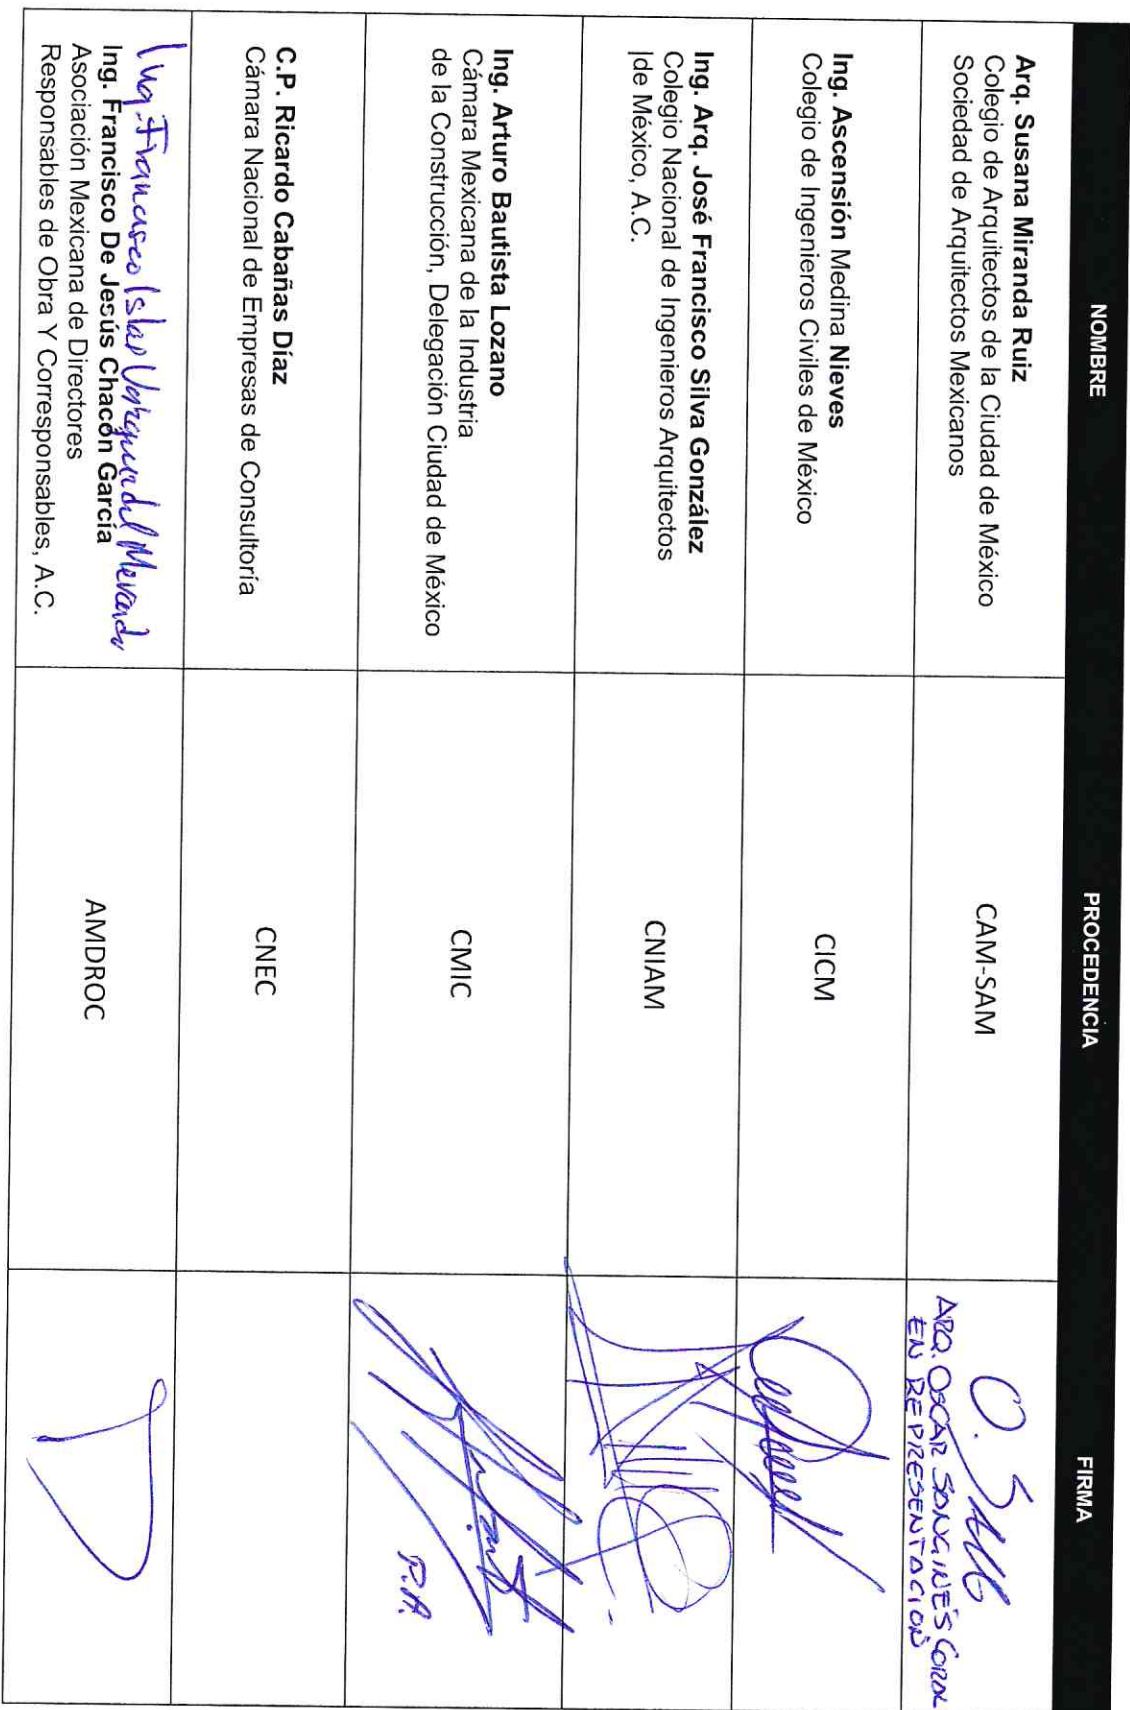 NOMBRE PROCEDENCIA FIRMA
Arq. Susana Miranda Ruiz
Colegio de Arquitectos de la Ciudad de México
Sociedad de Arquitectos Mexicanos
CAM-SAM
ARQ. OSCAR
EN REPRESENTACIÓN
Ing. Ascensión Medina Nieves
Colegio de Ingenieros Civiles de México
CICM
Ing. Arq. José Francisco Silva González
Colegio Nacional de Ingenieros Arquitectos
|de México, A.C.
CNIAM
Ing. Arturo Bautista Lozano
Cámara Mexicana de la Industria
de la Construcción, Delegación Ciudad de México
CMIC
P.A.
C.P. Ricardo Cabañas Díaz
Cámara Nacional de Empresas de Consultoría
CNEC
Ing. Francisco Islas
Ing. Francisco De Jesús Chacón García
Asociación Mexicana de Directores
Responsables de Obra Y Corresponsables, A.C.
AMDROC